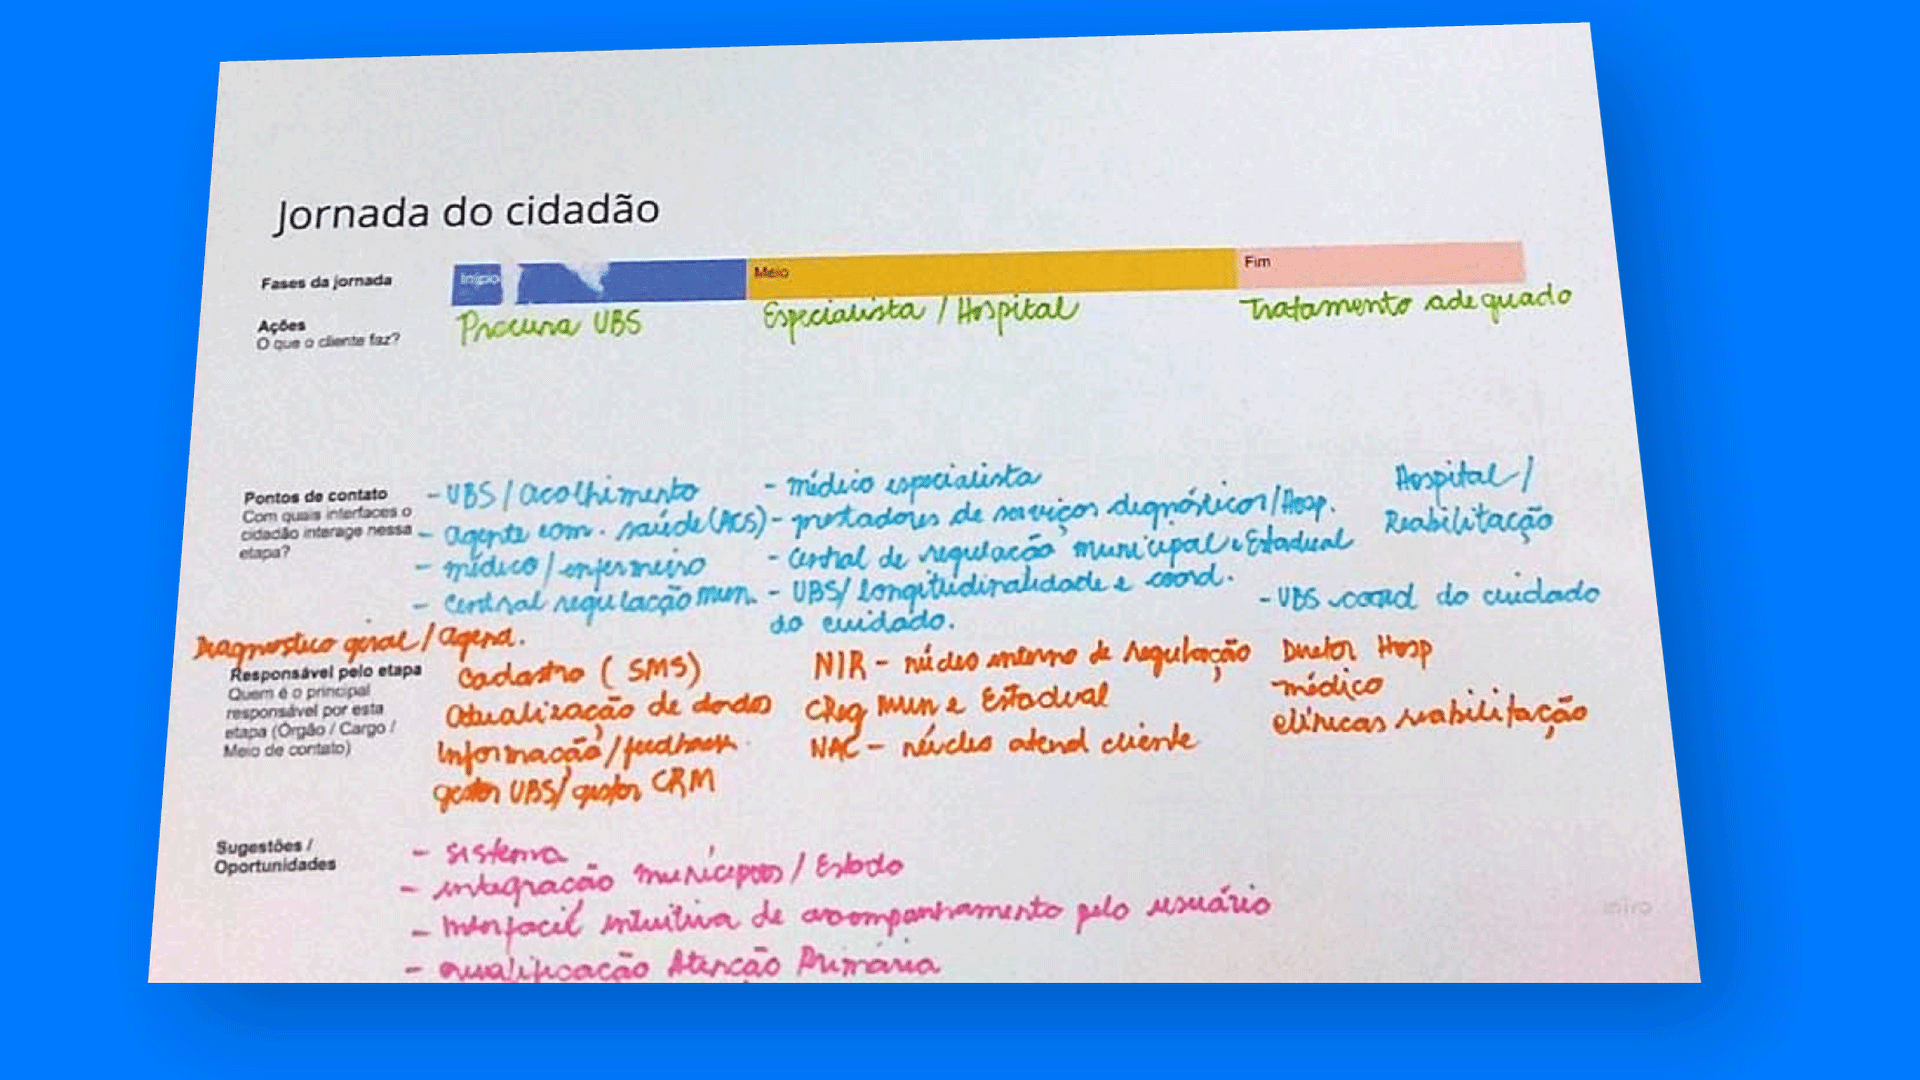 Jornada do cidadão
Fases da jornada
Início
Meio
Fim
Ações
O que o cliente faz?
Procura UBS
Especialista / Hospital
Tratamento adequado
Pontos de contato
Com quais interfaces o
cidadão interage nessa
etapa?
- UBS / acolhimento
- agente com. saúde (ACS)
- médico / enfermeiro
- Central regulação mun.
- médico especialista
- prestadores de serviços degnósticos / Hosp.
- Central de regulação municipal e Estadual
- UBS / longitudinalidade e coord.
do cuidado.
Hospital /
Reabilitação
- UBS coord do cuidado
Diagnostico geral / agend.
Responsável pelo etapa
Quem é o principal
responsável por esta
etapa (Órgão / Cargo /
Meio de contato)
Cadastro ( SMS)
Atualização de dados
Informação / feedback
gestor UBS / gestor CRM
NIR - núcleo interno de regulação
CReg Mun e Estadual
NAC - núcleo atend cliente
Diretor Hosp
médico
clínicas reabilitação
Sugestões /
Oportunidades
- sistema
- integração municípios / Estado
- intuitiva de acompanhamento pelo usuário
- qualificação Atenção Primária
miro